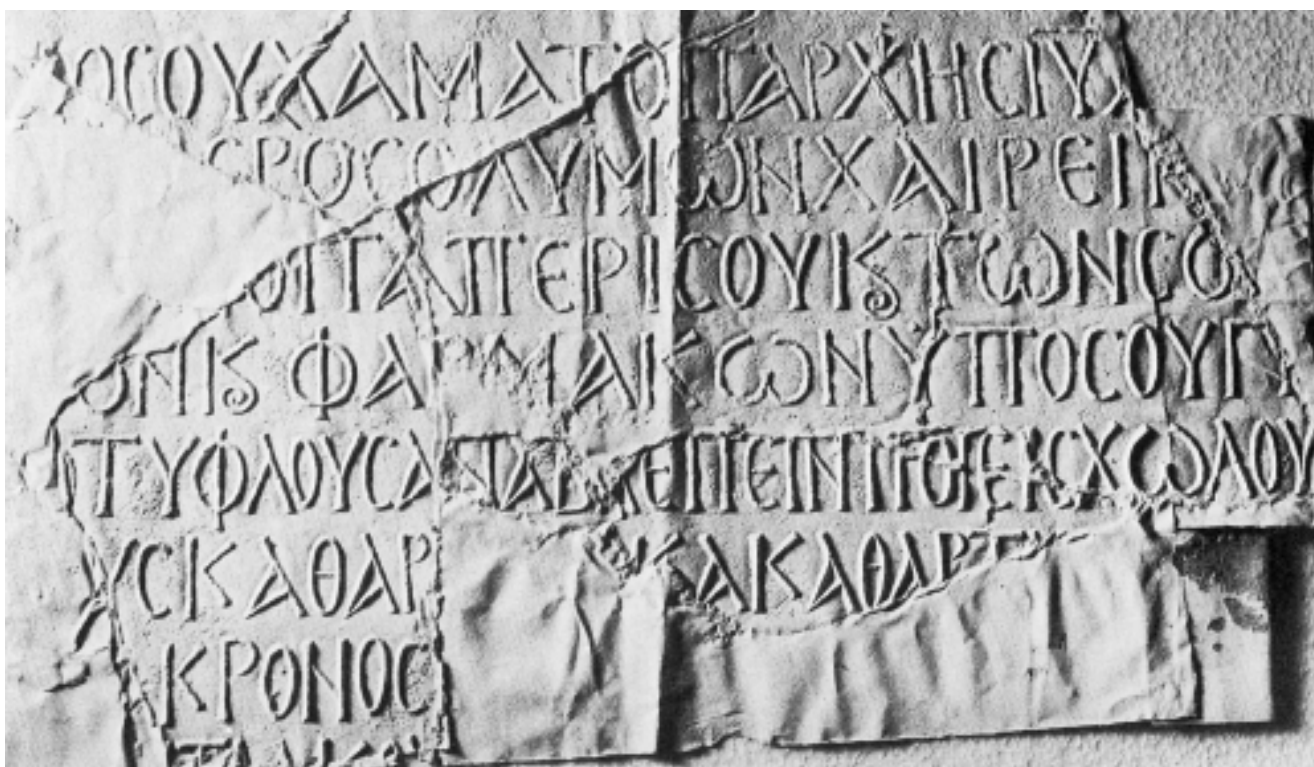 ΟϹΟΥΧΑΜΑΤΟΠΑΡΧΗϹΙΥΑ
ΕΡΟϹΟΛΥΜΩΝΧΑΙΡΕΙΝ
ΟΙΤΑΠΕΡΙϹΟΥΚϚΤΩΝϹΩ
ΩΝΚϚΦΑΡΜΑΚΩΝΥΠΟϹΟΥΓΙ
ΤΥΦΛΟΥϹΑΝΑΒΛΕΠΕΙΝΠΟΙΕΙϹΧΩΛΟΥ
ΥϹΚΑΘΑΡ ΚΑΚΑΘΑΡΤ
ΚΡΟΝΟϹ